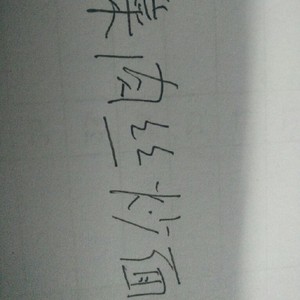 菜肉丝炒面